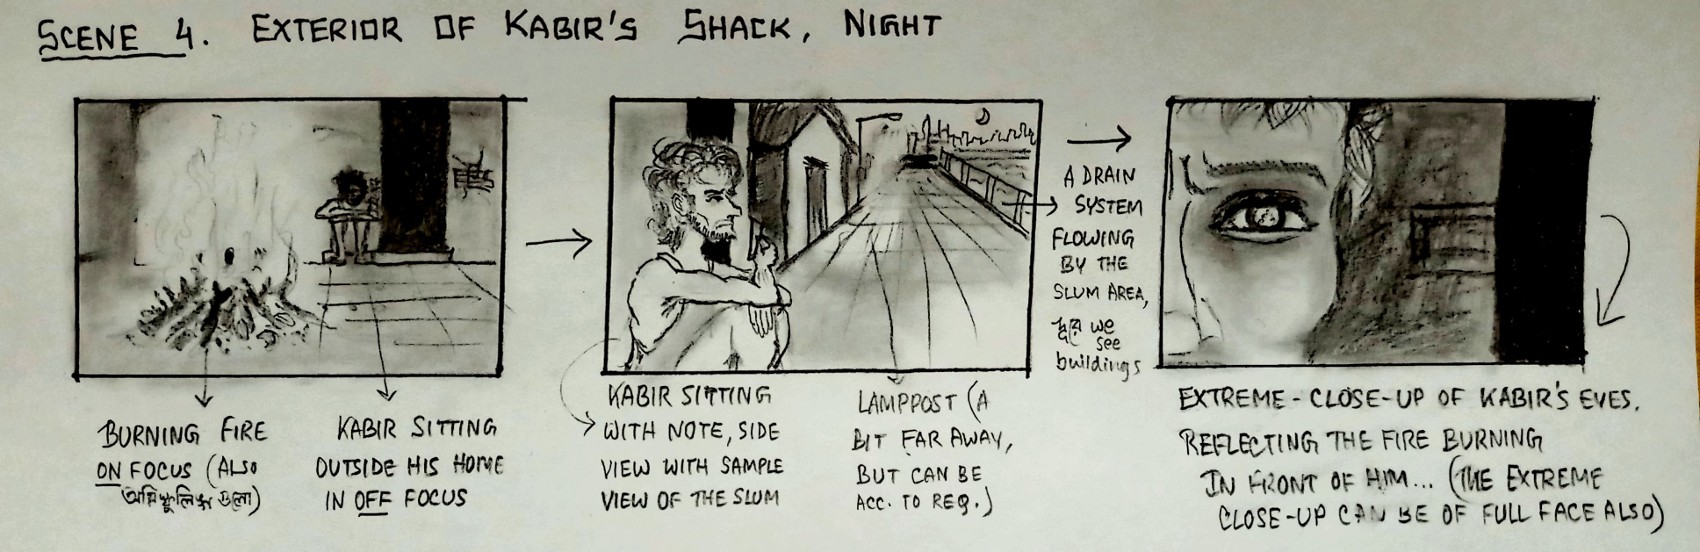 SCENE 4. EXTERIOR OF KABIR'S SHACK, NIGHT
BURNING FIRE
ON FOCUS (ALSO
অগ্নিস্ফুলিঙ্গ গুলো)
KABIR SITTING
OUTSIDE HIS HOME
IN OFF FOCUS
KABIR SITTING
WITH NOTE, SIDE
VIEW WITH SAMPLE
VIEW OF THE SLUM
LAMPPOST (A
BIT FAR AWAY,
BUT CAN BE
ACC. TO REQ.)
A DRAIN
SYSTEM
FLOWING
BY THE
SLUM AREA,
we
see
buildings
EXTREME-CLOSE-UP OF KABIR'S EYES.
REFLECTING THE FIRE BURNING
IN FRONT OF HIM... (THE EXTREME
CLOSE-UP CAN BE OF FULL FACE ALSO)